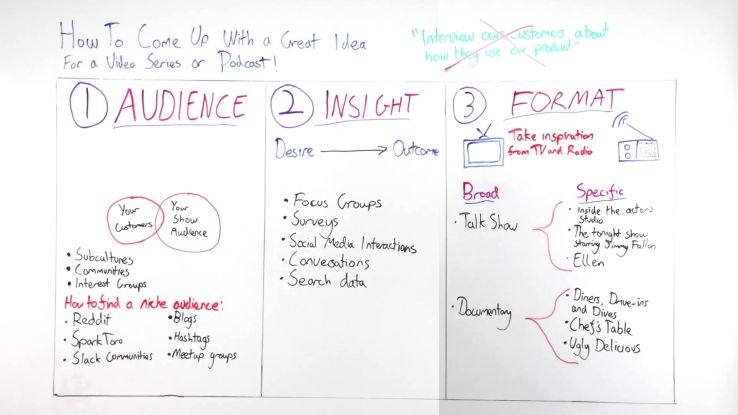 How To Come Up With a Great Idea
For a Video Series or Podcast!
"Interview our customers about
how they use our product"
1 AUDIENCE
Your
Customers
Your
Show
Audience
• Subcultures
• Communities
• Interest Groups
How to find a niche audience:
• Reddit
• SparkToro
• Slack Communities
• Blogs
• Hashtags
• Meetup groups
2 INSIGHT
Desire → Outcome
• Focus Groups
• Surveys
• Social Media Interactions
• Conversations
• Search data
3 FORMAT
Take inspiration
from TV and Radio
Broad
Specific
• Talk Show
• Inside the actor's
Studio
• The tonight show
starring Jimmy Fallon
• Ellen
• Documentary
• Diners, Drive-ins
and Dives
• Chef's Table
• Ugly Delicious